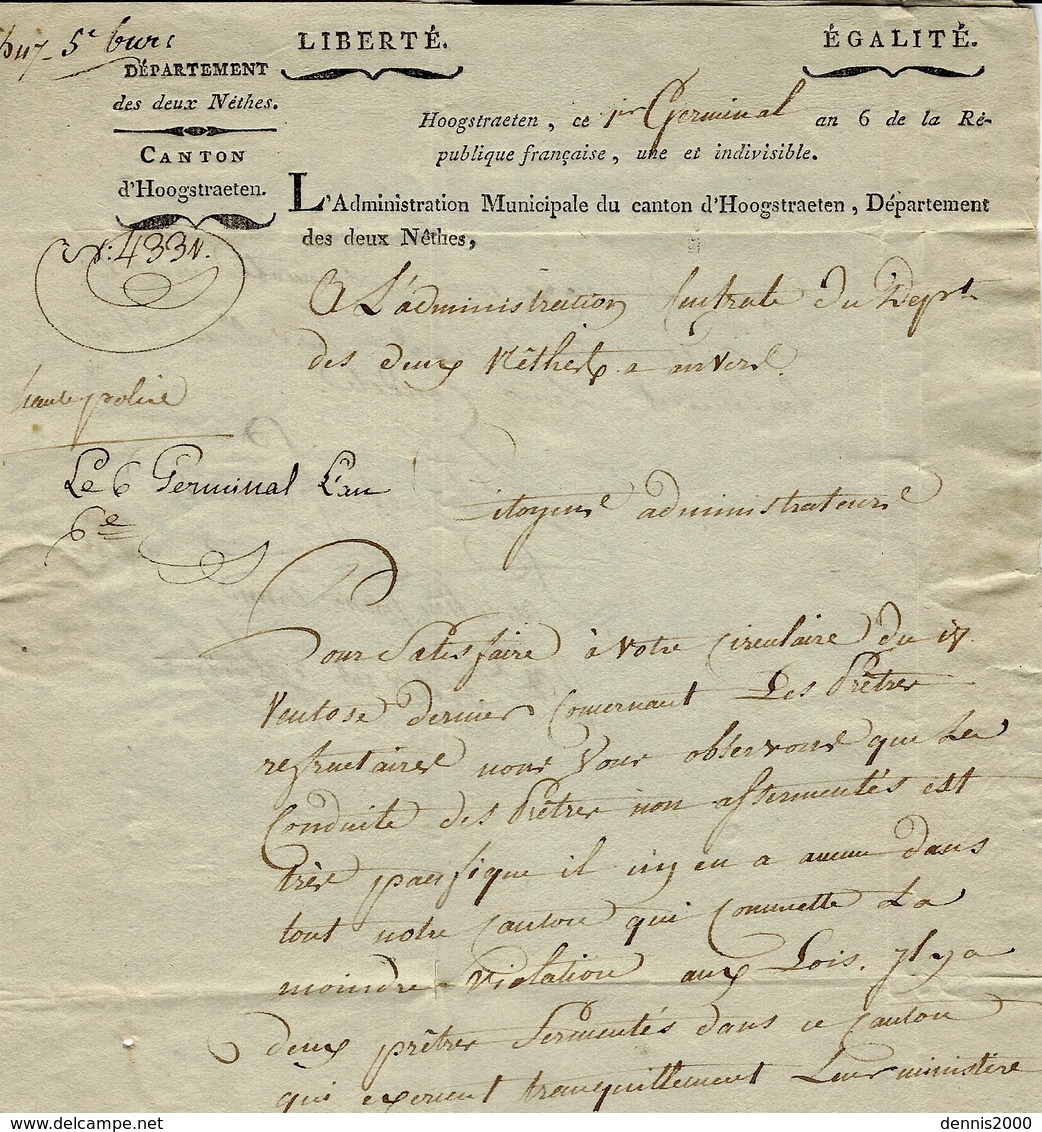 5e bur
LIBERTÉ.
ÉGALITÉ.
DÉPARTEMENT
des deux Nèthes.
CANTON
d'Hoogstraeten.
Hoogstraeten, ce 1er Germinal an 6 de la Ré-
publique française, une et indivisible.
L'Administration Municipale du canton d'Hoogstraeten, Département
des deux Nêthes,
N.° 433
A L'administration Centrale du Dept
des deux Nêthes a anvers.
haute police
Le 6 Germinal L'an
6e
Citoyens administrateurs
Pour Satisfaire à votre Circulaire du 17
Ventose dernier Concernant Les Prêtres
refractaires nous Vous observons que La
Conduite des Prêtres non assermentés est
très pacifique il n'y en a aucun dans
tout notre Canton qui Commette La
moindre violation aux Lois. yl y a
deux prêtres Sermentés dans ce Canton
qui exercent tranquillement Leur ministère
dennis2000